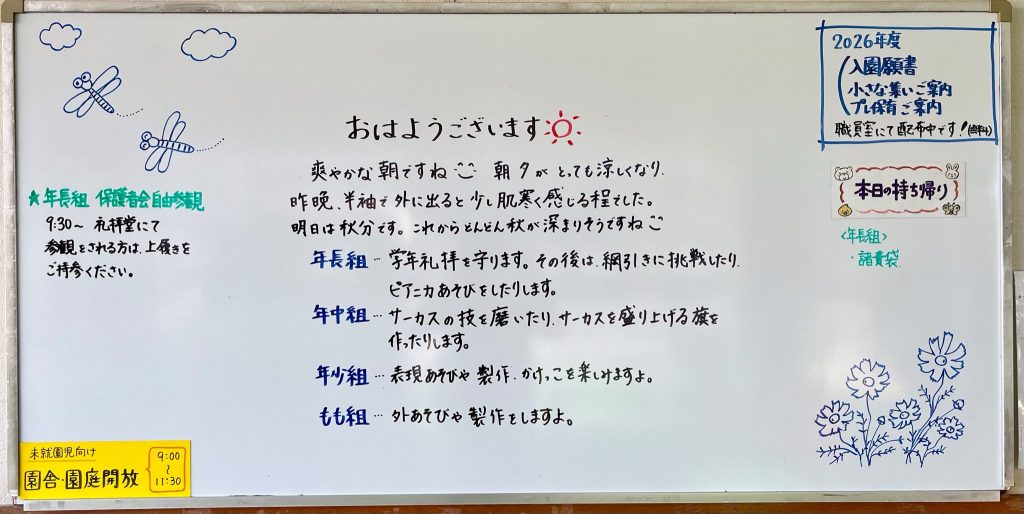 おはようございます
爽やかな朝ですね 朝夕がとっても涼しくなり、
昨晩、半袖で外に出ると少し肌寒く感じる程でした。
明日は秋分です。これからどんどん秋が深まりそうですね
年長組…学年礼拝を守ります。その後は、綱引きに挑戦したり、
ピアニカあそびをしたりします。
年中組…サーカスの技を磨いたり、サーカスを盛り上げる旗を
作ったりします。
年少組…表現あそびや製作、かけっこを楽しみますよ。
もも組…外あそびや製作をしますよ。
★年長組 保護者会自由参観
9:30〜 礼拝堂にて
参観をされる方は、上履きを
ご持参ください。
未就園児向け
園舎・園庭開放
9:00
〜
11:30
2026年度
入園願書
小さな集いご案内
プレ保育ご案内
職員室にて配布中です!(無料)
本日の持ち帰り
<年長組>
・諸費袋